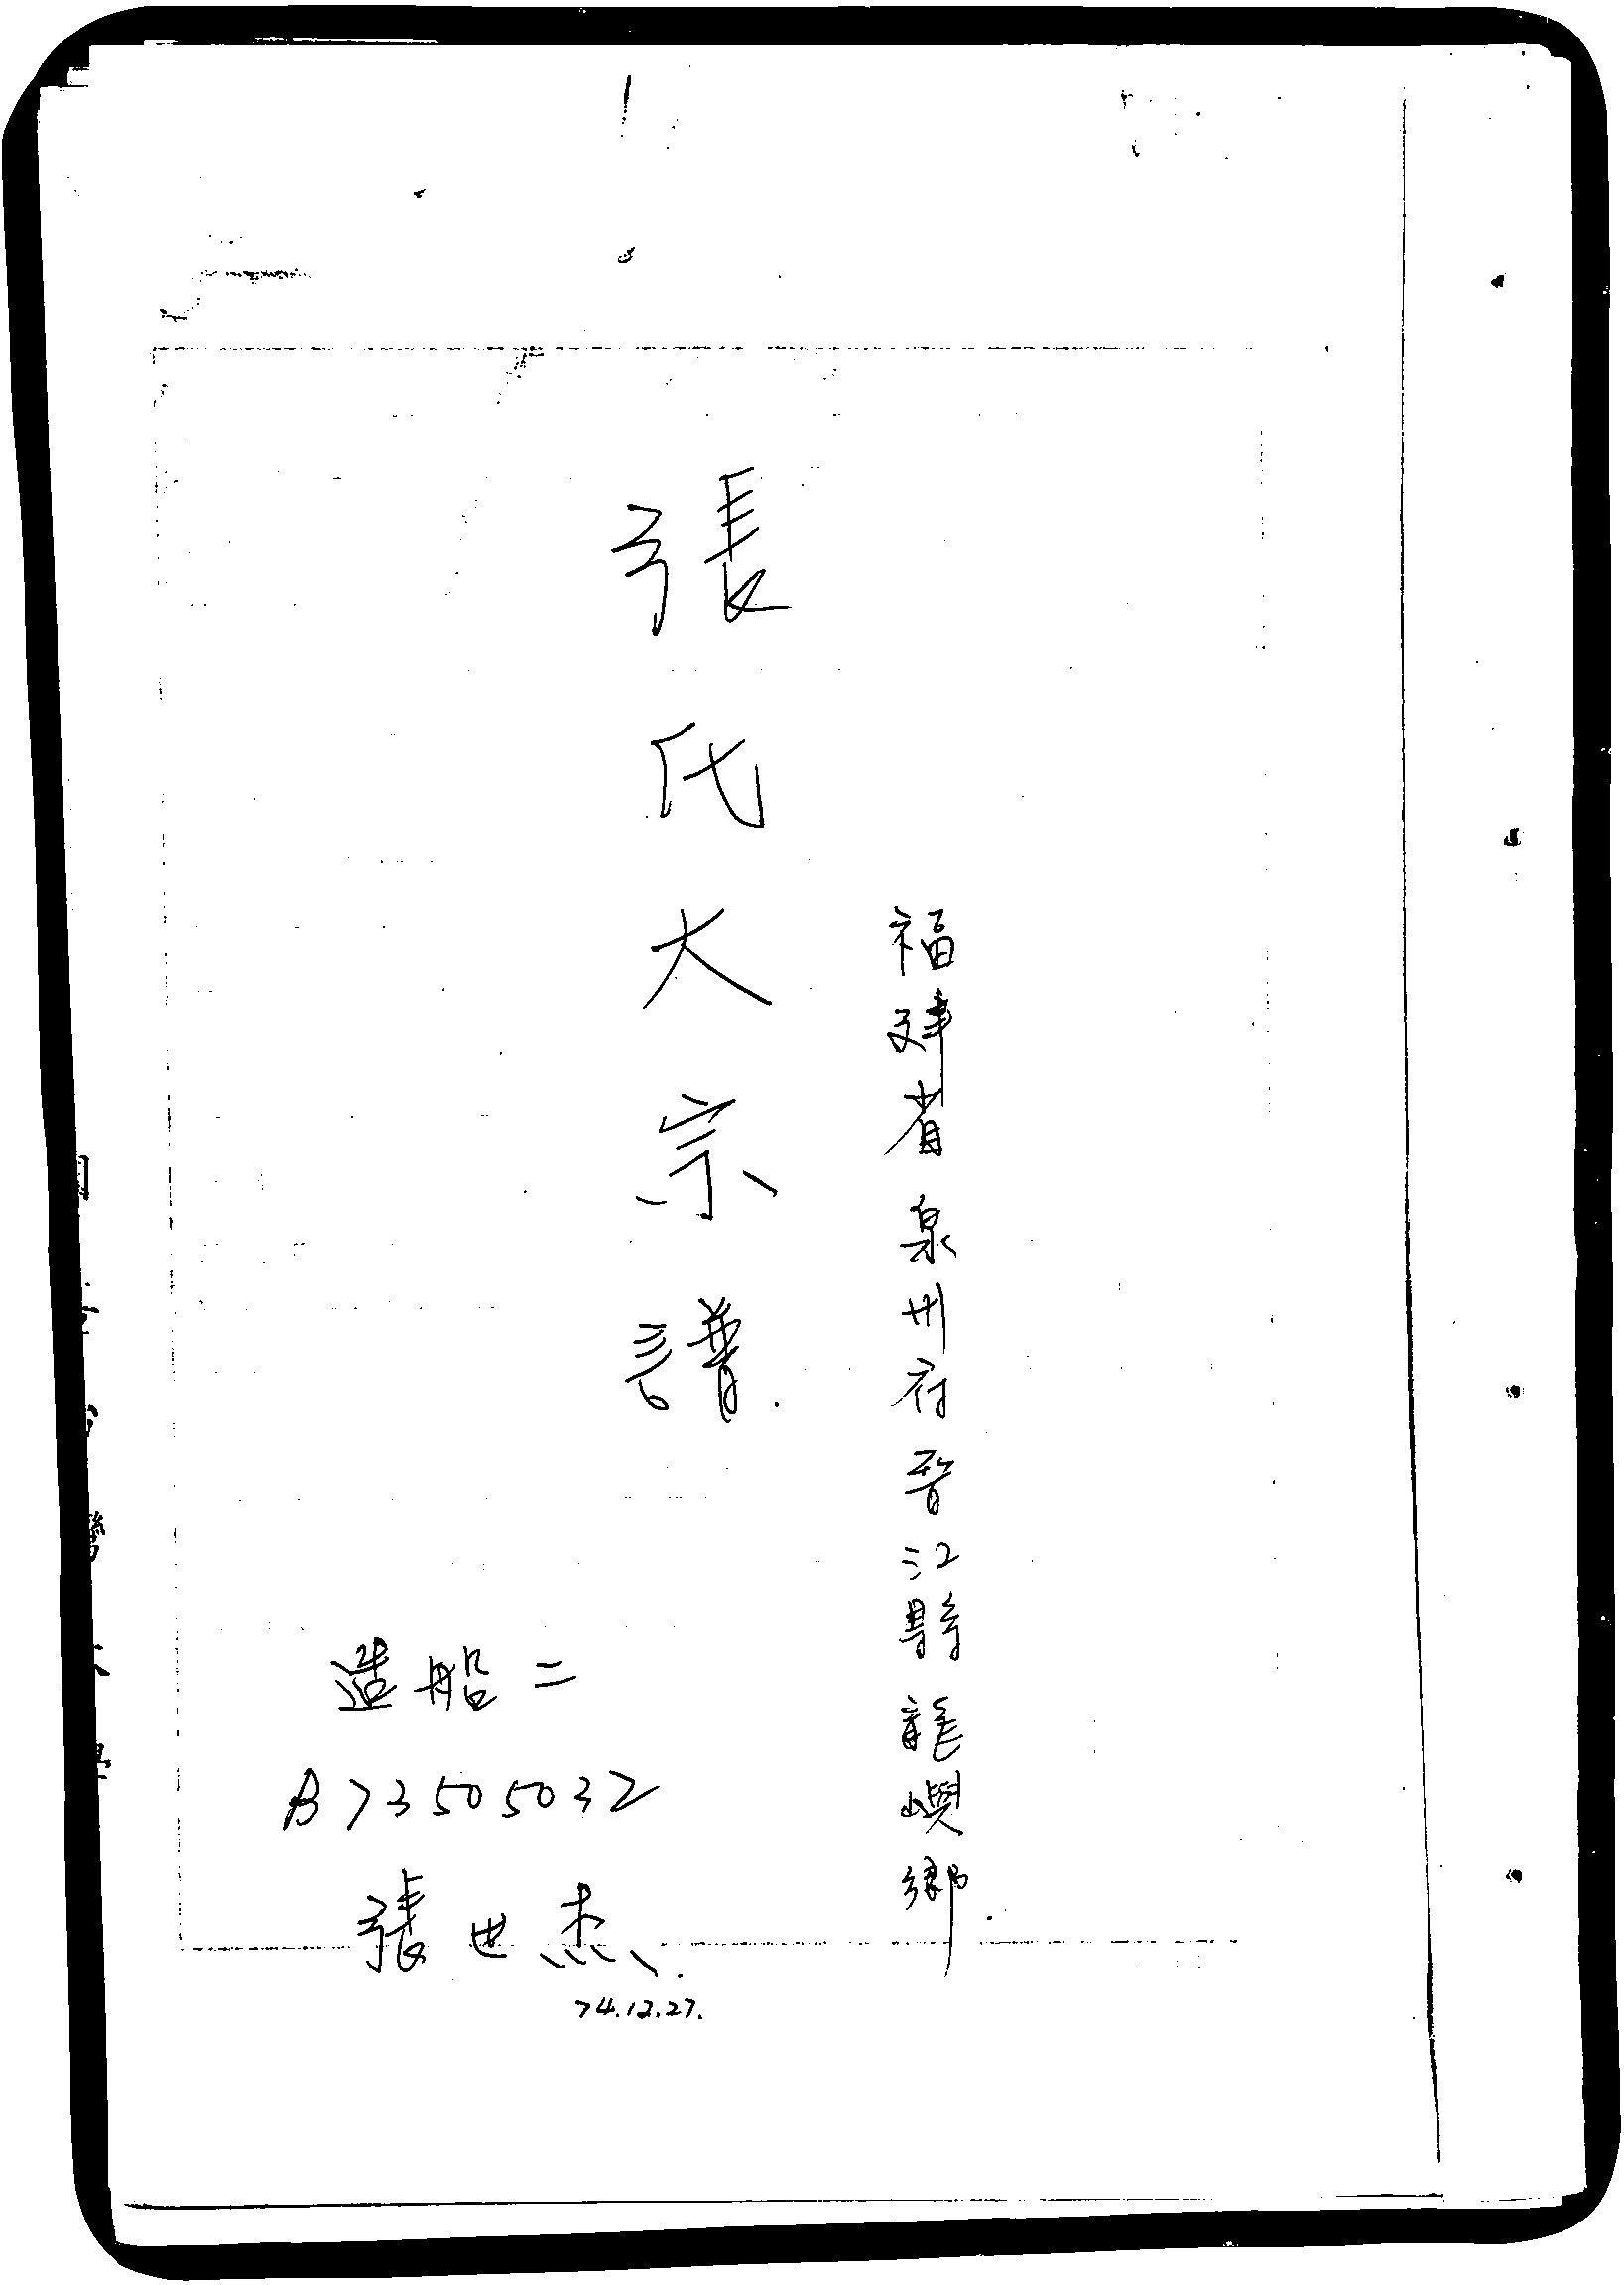 福建省泉州府晉江縣龍嶼鄉.
張氏大宗譜.
造船二
B73505032
張世杰.
74.12.27.